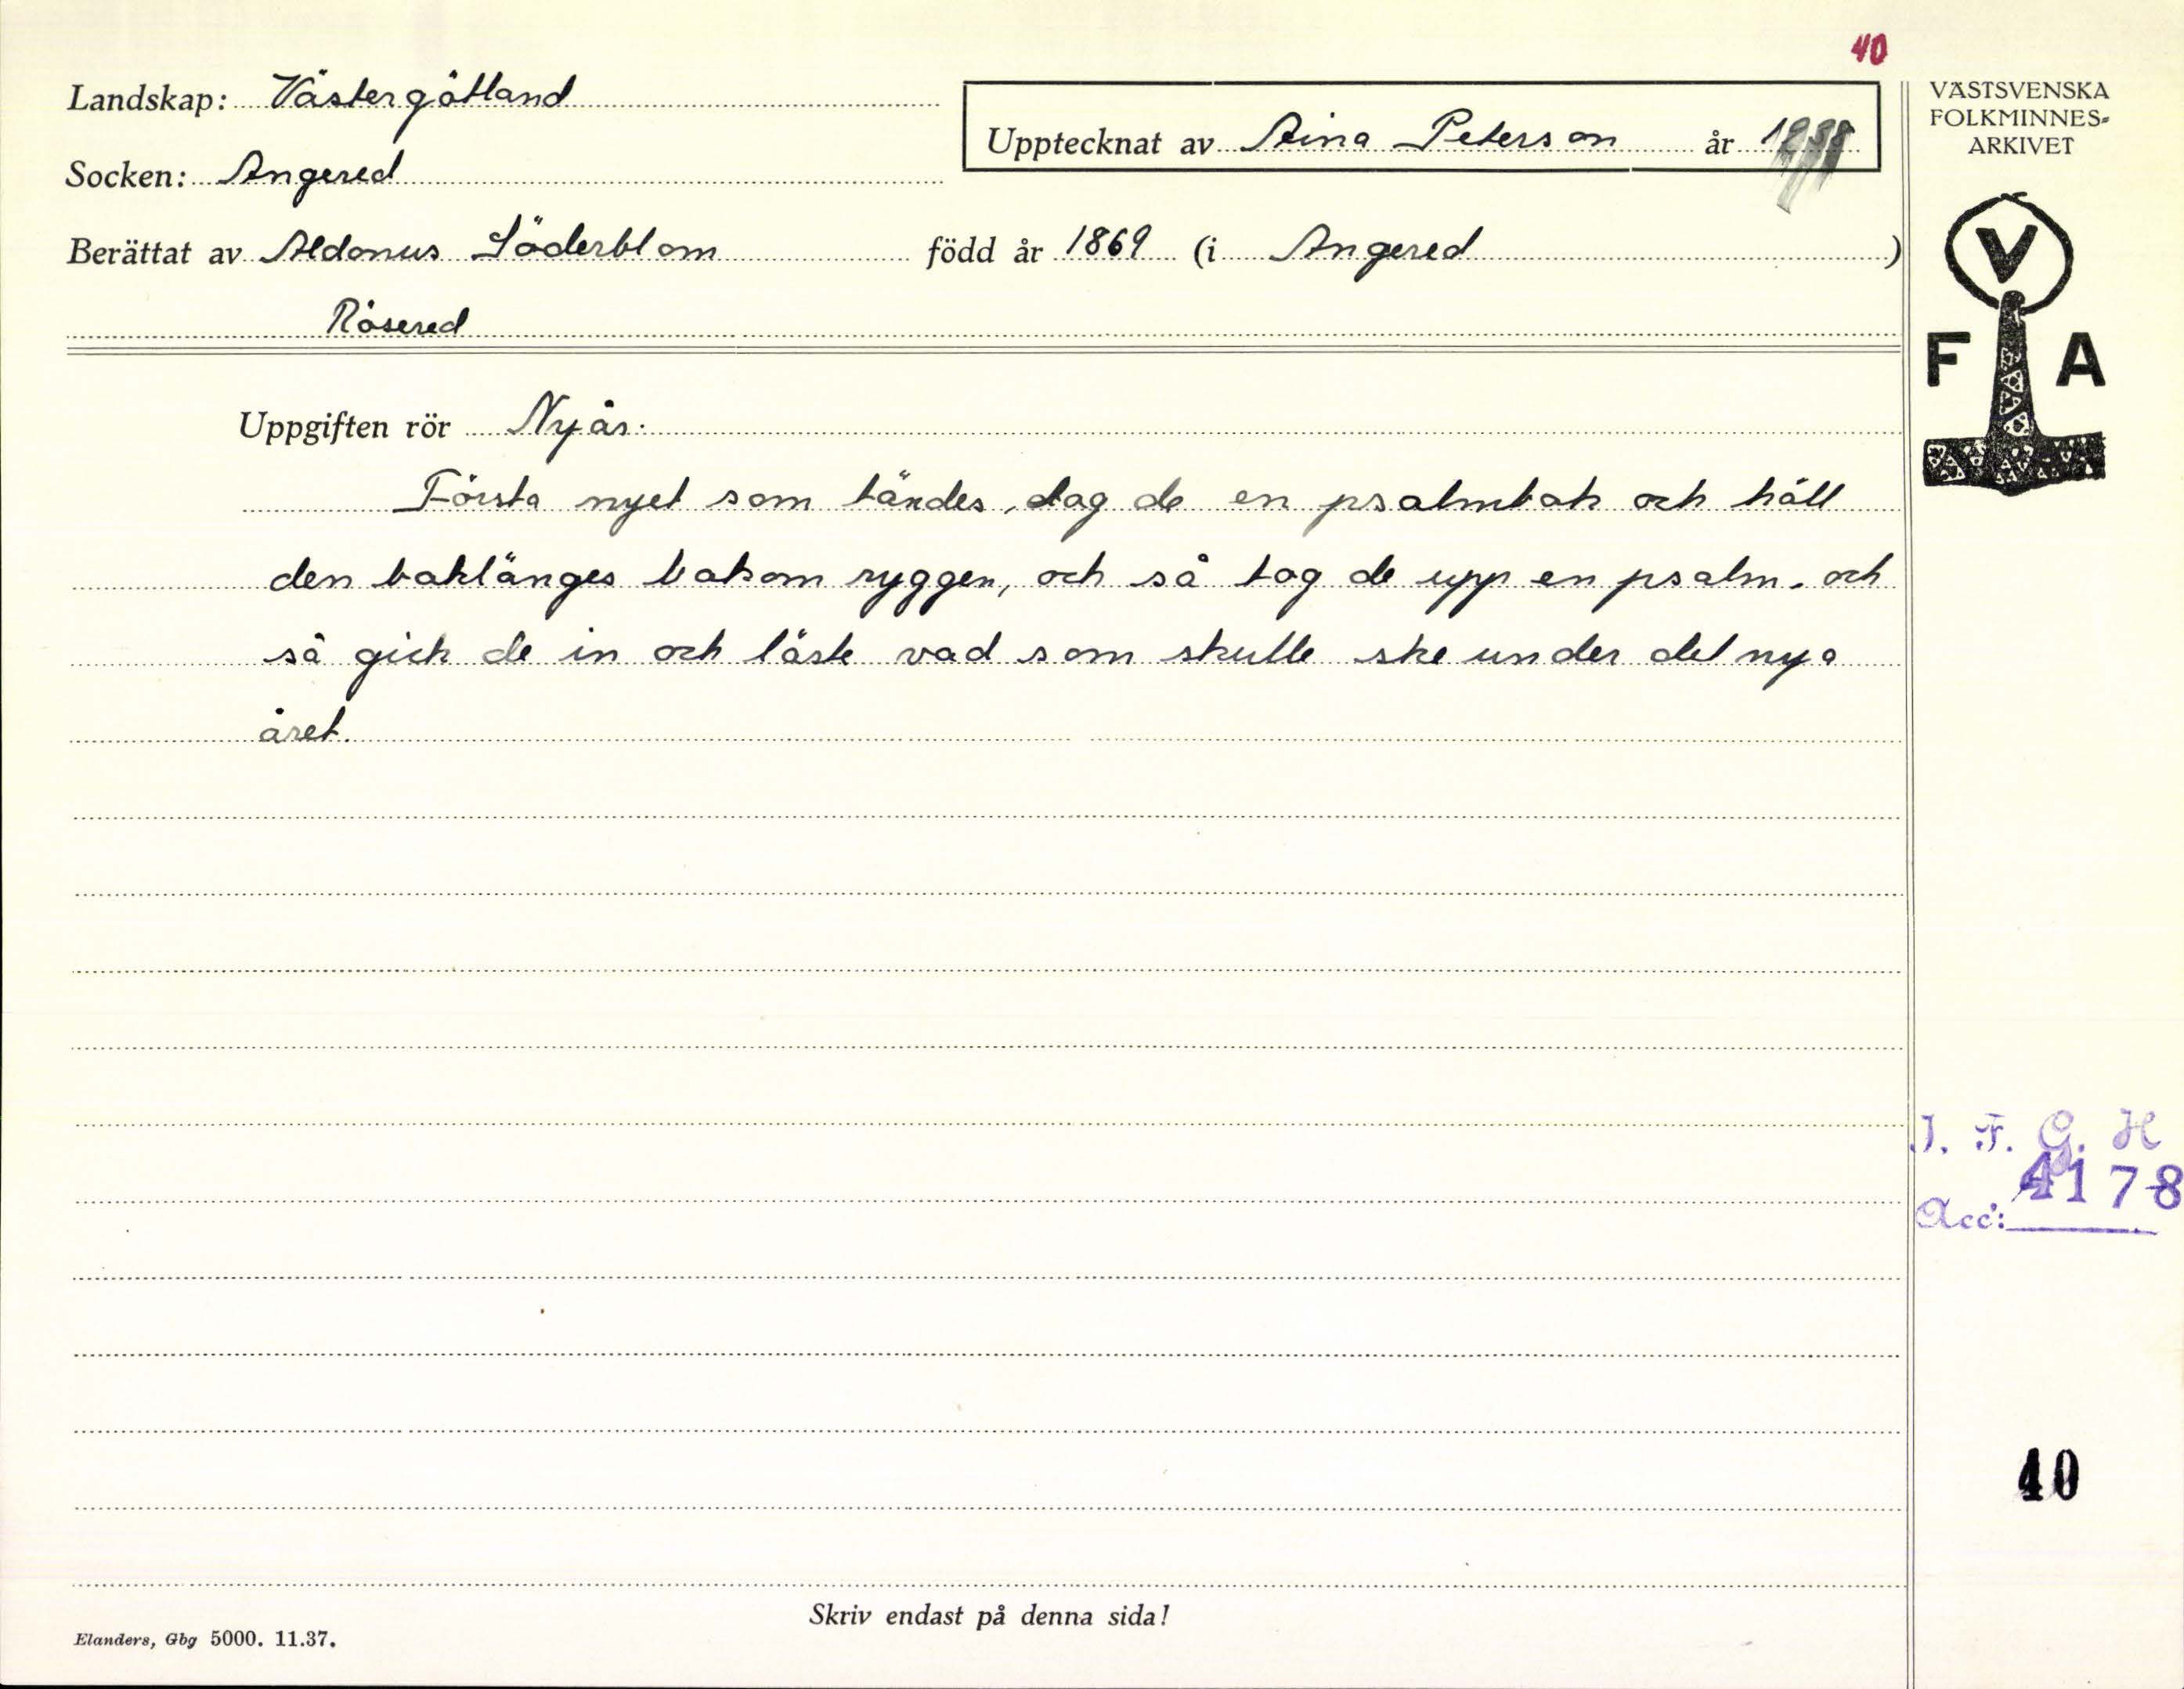 40
Landskap: Västergötland
Upptecknat av Aina Peterson år 1938
Socken: Angered
Berättat av Aldonus Söderblom född år 1869 (i Angered)
Rösered
VÄSTSVENSKA
FOLKMINNES-
ARKIVET
V
F A
Uppgiften rör Nyår.
Första nyet som tändes, tog de en psalmbok och höll
den baklänges bakom ryggen, och så tog de upp en psalm. och
så gick de in och läste vad som skulle ske under det nya
året.
I. F. G. H
4178
Acc:
40
Skriv endast på denna sida!
Elanders, Gbg 5000. 11.37.